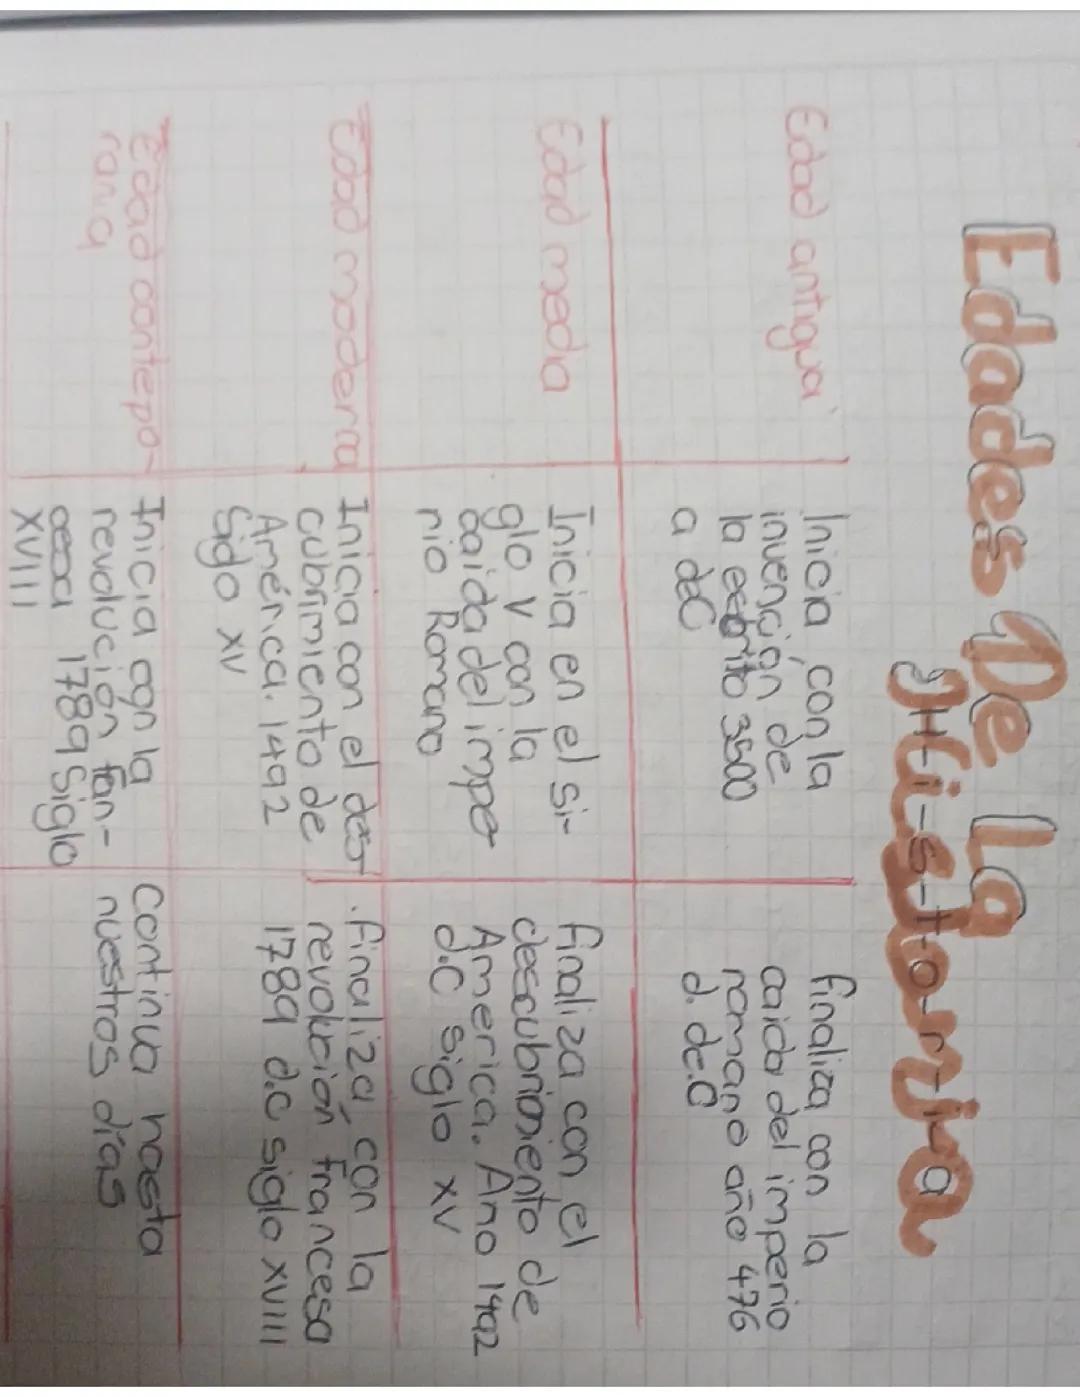 Edades De La
Historia
Edad antigua
Inicia con la
invención de
la escrito 3500
a deC
finaliza con la
caida del imperio
romano año 476
d. de.C
Edad media
Inicia en el si-
glo V con la
caida del imper
rio Romano
finaliza con el
descubrimiento de
America. Año 1492
d.C siglo XV
Edad moderna
Inicia con el des
cubrimiento de
América. 1492
Siglo XV
. finaliza con la
revolución francesa
1789 d.c siglo XVIII
Edad contepo-
rania
Inicia con la
revolución fran-
cesa 1789 Siglo
XVIII
Continua hasta
nuestros días